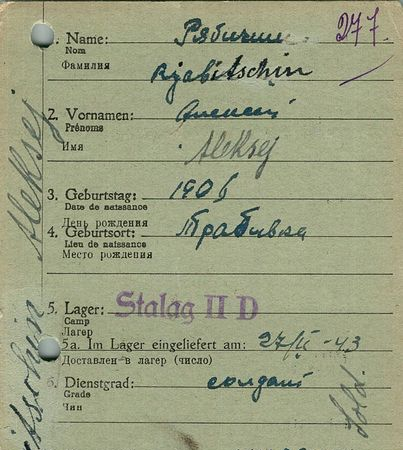 1. Name: Рябичин 277.
Nom
Фамилия Rjabitschin
2. Vornamen: Алексей
Prénoms
Имя Aleksej
3. Geburtstag: 1906
Date de naissance
День рождения
4. Geburtsort:
Lieu de naissance
Место рождения
5. Lager: Stalag II D
Camp
Лагерь
5a. Im Lager eingeliefert am: 43
Доставлен в лагерь (число)
6. Dienstgrad: солдат
Grade
Чин
Sold.
Aleksej